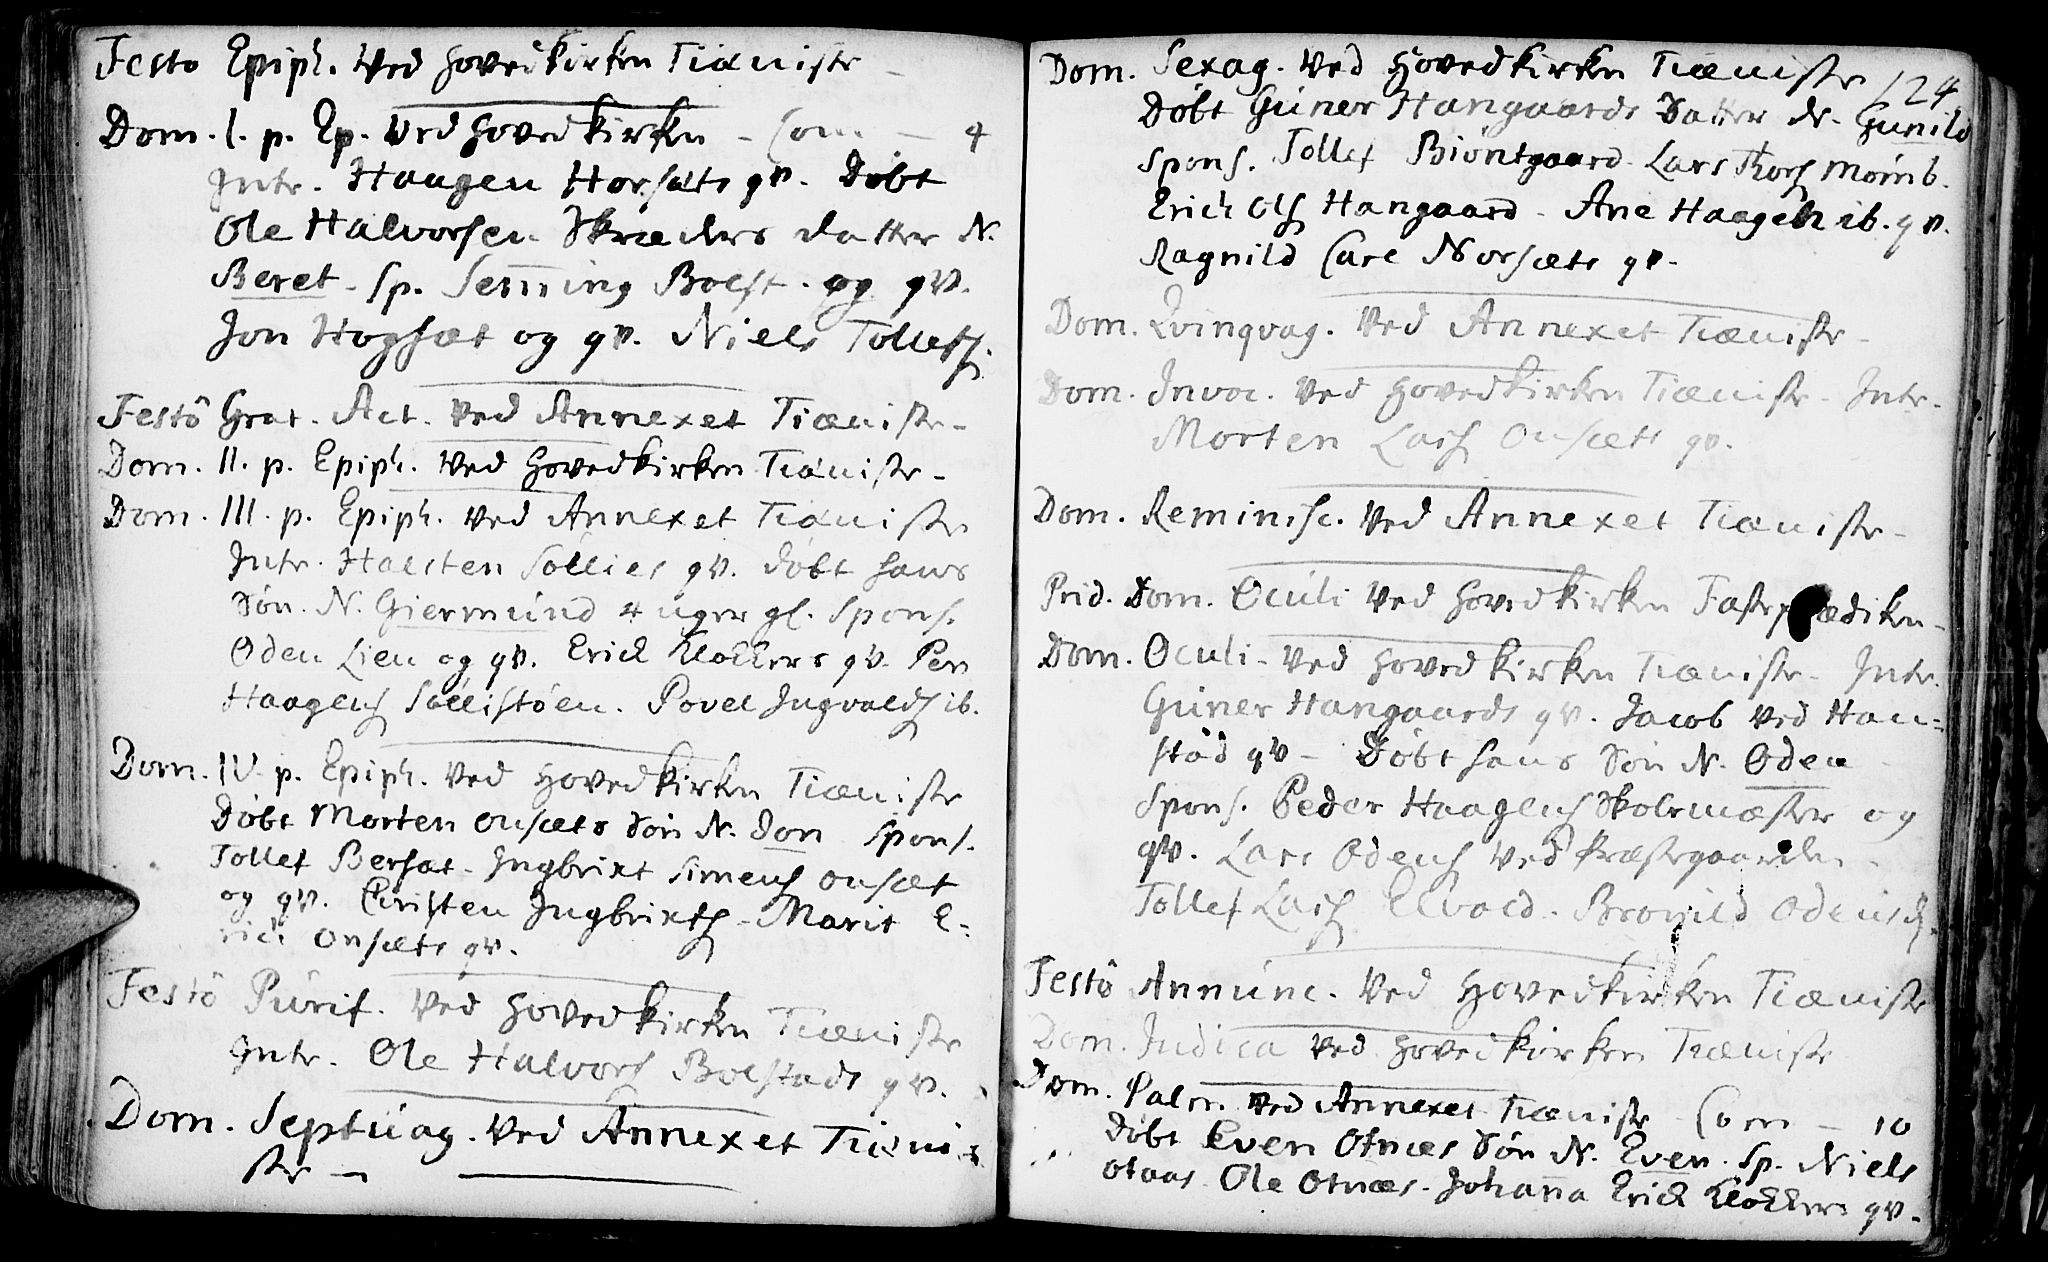 Festo Epiph. Ved Hovedkirken Tiæniste -
Dom. I. p. Ep. Ved Hovedkirken - Com. - 4
Intr. Haagen Horsæts qv. Døbt
Ole Halvorsen Skræders datter N.
Beret - Sp. Semming Bolst. og qv.
Jon Hogsæt og qv. Niels Tollefs.
Festô Grat. Act. Ved Annexet Tiæniste -
Dom. II. p. Epiph. Ved Hovedkirken Tiæniste -
Dom. III. p. Epiph. Ved Annexet Tiæniste
Intr. Halsten Sollies qv. døbt hans
Søn. N. Giermund 4 uger gl. Spons.
Oden Lien og qv. Erick Klockers qv. Per
Haagens Sollistøen. Povel Ingvalds ib.
Dom. IV. p. Epiph. Ved Hovedkirken Tiæniste
Døbt Morten Onsæts Søn N. Jon Spons.
Tollef Bersæt - Ingbrixt Simens Onsæt
og qv. Christen Ingbrixts - Marit E-
rich Onsæts qv.
Festô Purif. Ved Hovedkirken Tiæniste
Intr. Ole Halvors Bolstads qv.
Dom. Septuag. Ved Annexet Tiæni-
ste -
Dom. Sexag. Ved Hovedkirken Tiæniste 124
Døbt Guner Hangaards Datter N. Gunild
Spons. Tollef Biøntgaard Lars Thors
Erich Ols Hangaard - Ane Haagen ib. qv.
Ragnild Care Norsæts qv.
Dom. Qvinqvag. Ved Annexet Tiæniste -
Dom. Invoc. Ved Hovedkirken Tiæniste - Intr.
Morten Lars Onsæts qv.
Dom. Reminisc. Ved Annexet Tiæniste -
Prid. Dom. Oculi Ved Hovedkirken Fasteprædiken -
Dom. Oculi - Ved Hovedkirken Tiæniste - Intr.
Guner Hangaards qv. Jacob Ved Han=
stad qv - Døbt hans Søn N. Oden
Spons. Peder Haagens Skolemæster og
qv. Lars Odens Ved Præstegaarden -
Tollef Lars Elvold. Bronild Odensd.
Festô Annunc. Ved Hovedkirken Tiæniste
Dom. Judica Ved Hovedkirken Tiæniste
Dom. Palm. Ved Annexet Tiæniste - Com - 10
Døbt Even Otnæs Søn N. Even. Sp. Niels
Otnæs. Ole Otnæs. Johana Erick Klockers qv.